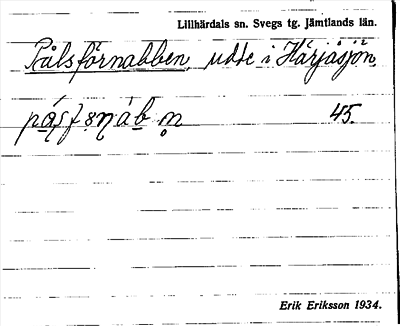 Lillhärdals sn. Svegs tg. Jämtlands län.
Pålsförnabben, udde i Härjåsjön.
45.
Erik Eriksson 1934.